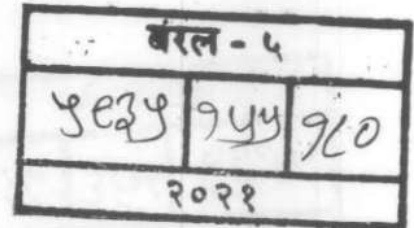 बरल - ५
५९३५ १५५ १८०
२०२१